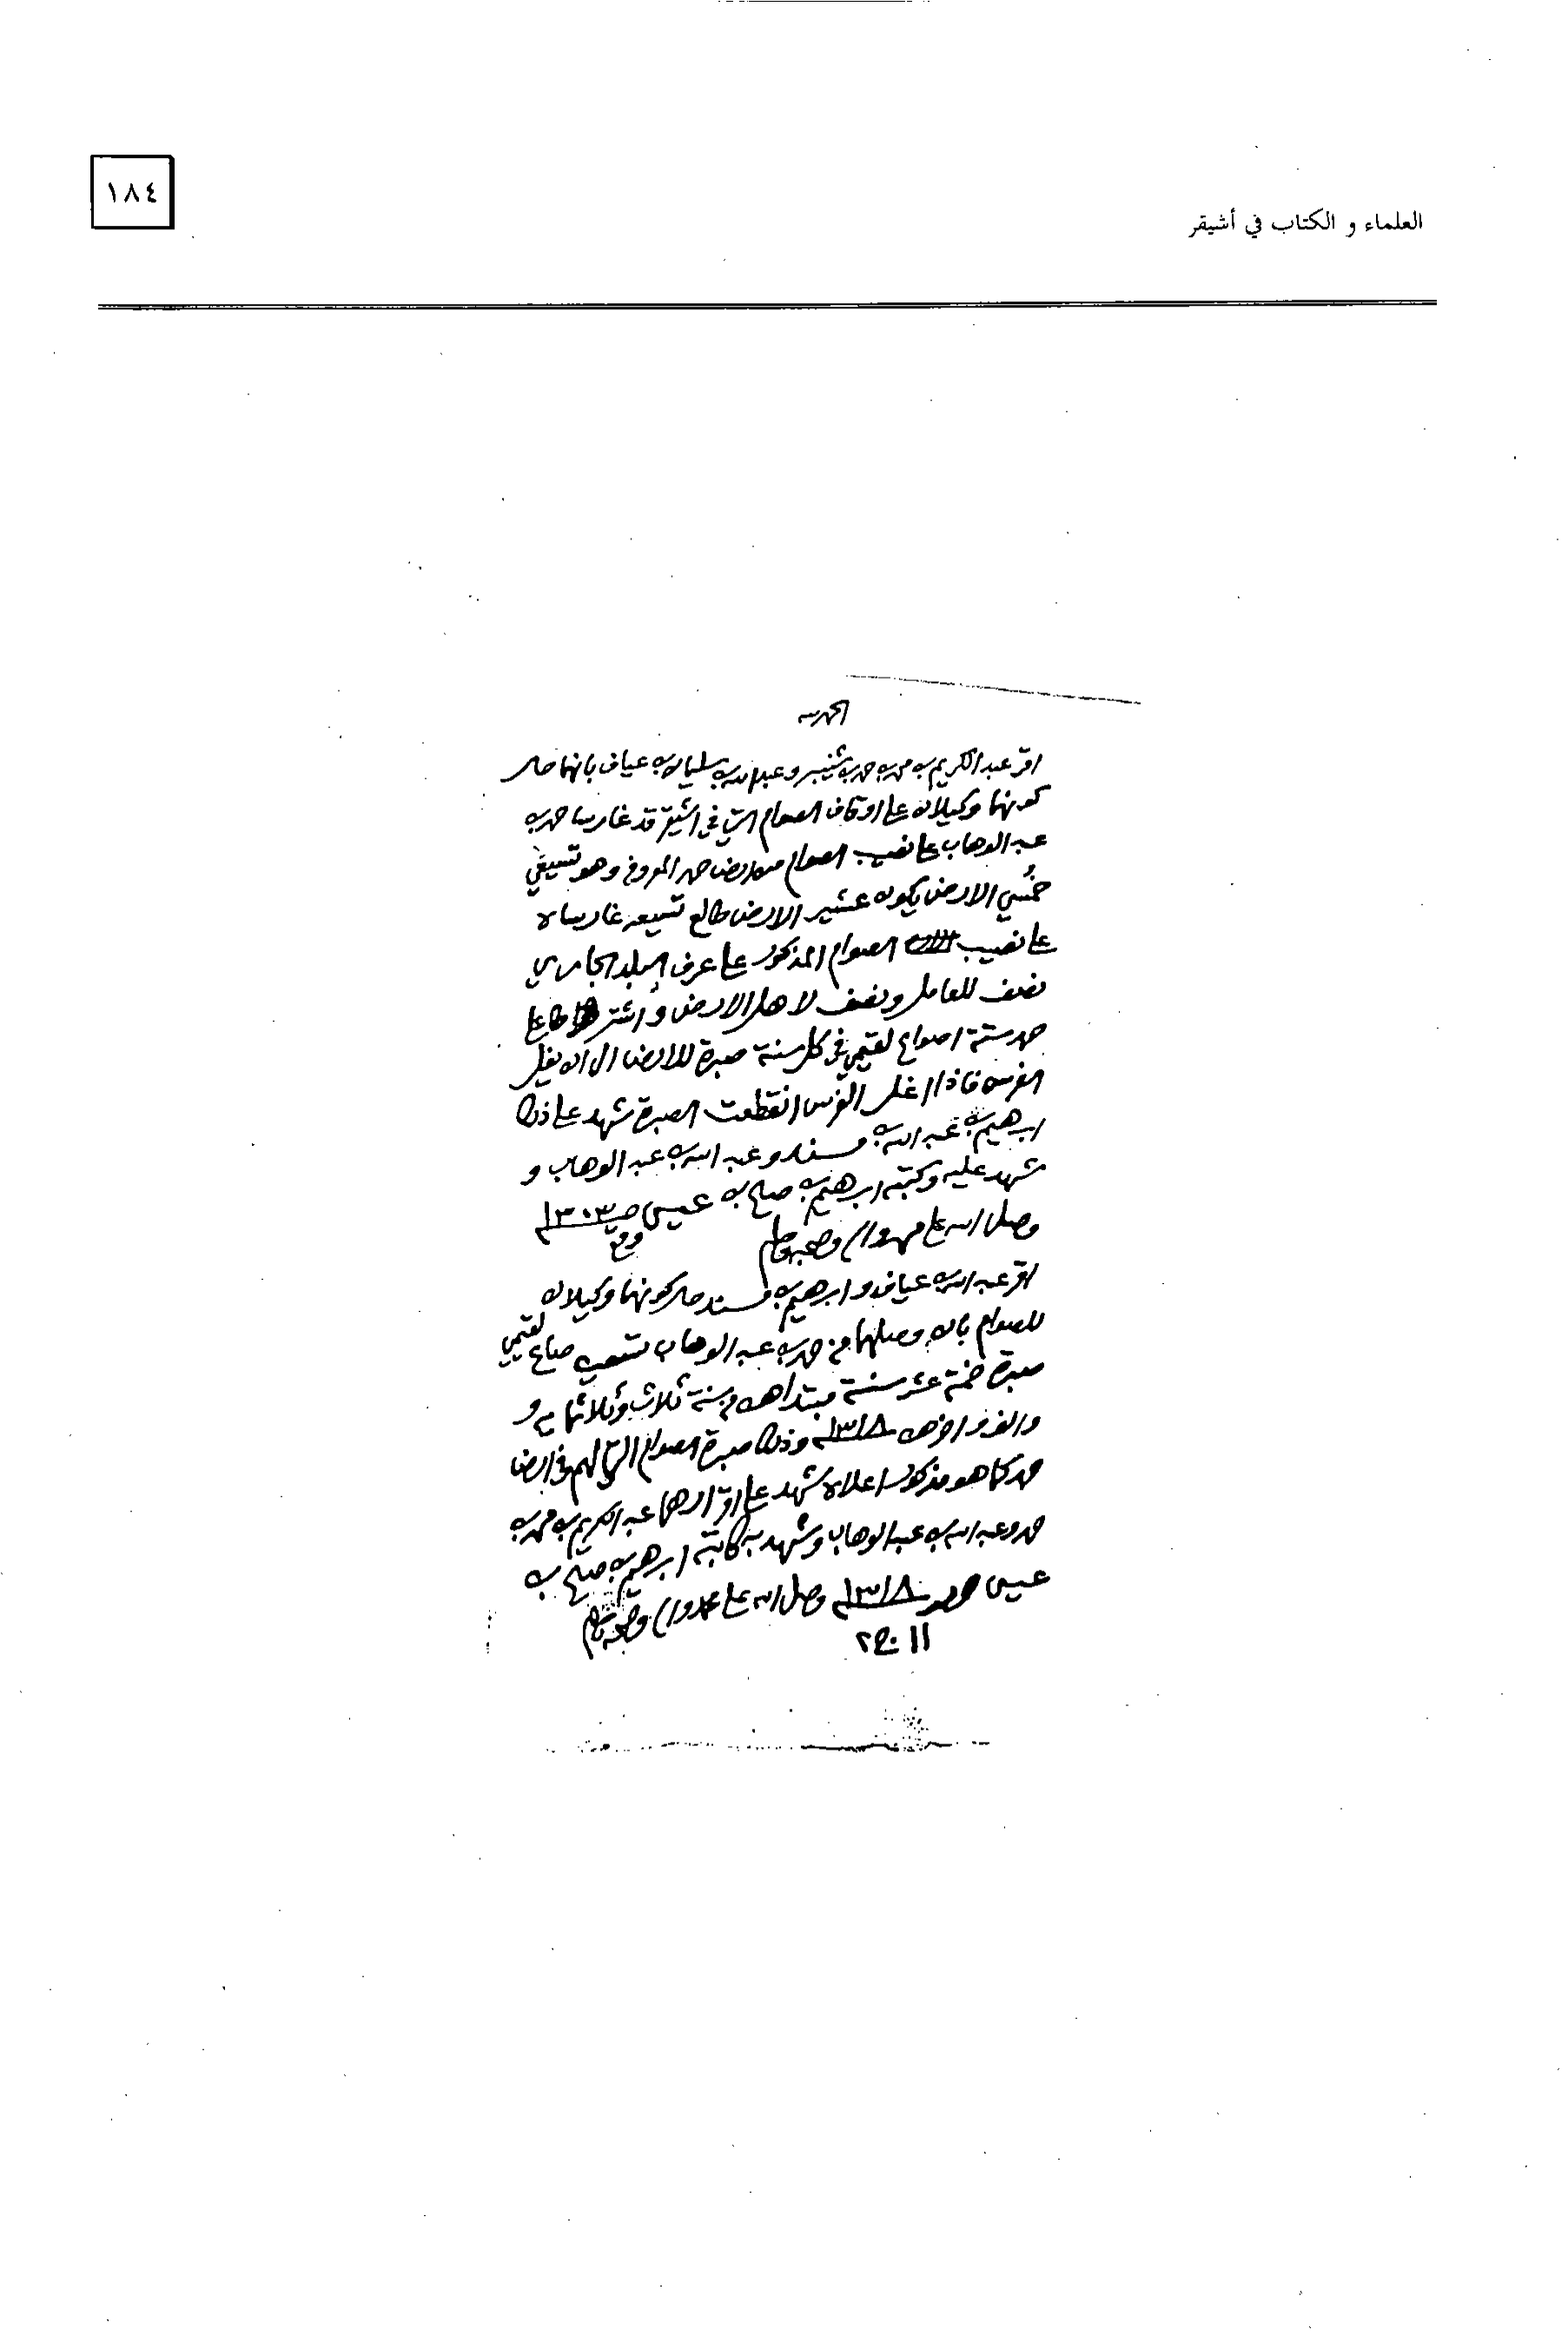 ١٨٤
العلماء و الكتاب في أشيقر
الحمد لله
اقر عبدالكريم بن محمد بن حمد بن شنيبر وعبدالله بن سليمان بن عياف بانهما حال
كونهما وكيلان على اوقاف الصوام التي في اشيقر قد غارسا حمد بن
عبد الوهاب على نصيب الصوام من ارض حمد المعروف وهو
خمسي الارض يكون عشير الارض طالع غارساه
على نصيب الصوام المذكور على عرف البلد الجاري
نصف للعامل ونصف لاهل الارض واشترطا على
حمد ستة اصواع لقيمي في كل سنة صبرة للارض الى ان يغل
الغرس فاذا اغل الغرس انقطعت الصبرة شهد على ذلك
ابرهيم بن عبد الله بن مسند وعبد الله بن عبد الوهاب و
شهد عليه وكتبه ابرهيم بن صالح بن عيسى ١٣٠٣
وصلى الله على محمد وآله وصحبه وسلم
اقر عبد الله بن عياف وابرهيم بن مسند حال كونهما وكيلان
للصوام بان وصلهما من حمد بن عبد الوهاب تسعين صاع لقيمي
صبرة خمسة عشر سنة مبتداهن من سنة ثلاث وثلاثماية و
والف واخرهن ١٣١٨ وذلك صبرة الصوام التي لهم في ارض
حمد كما هو مذكور اعلاه شهد على اقرارهما عبد الكريم بن محمد بن
حمد وعبد الله بن عبد الوهاب وشهد به كاتبه ابرهيم بن صالح بن
عيسى ١٣١٨ وصلى الله على محمد وآله وصحبه وسلم